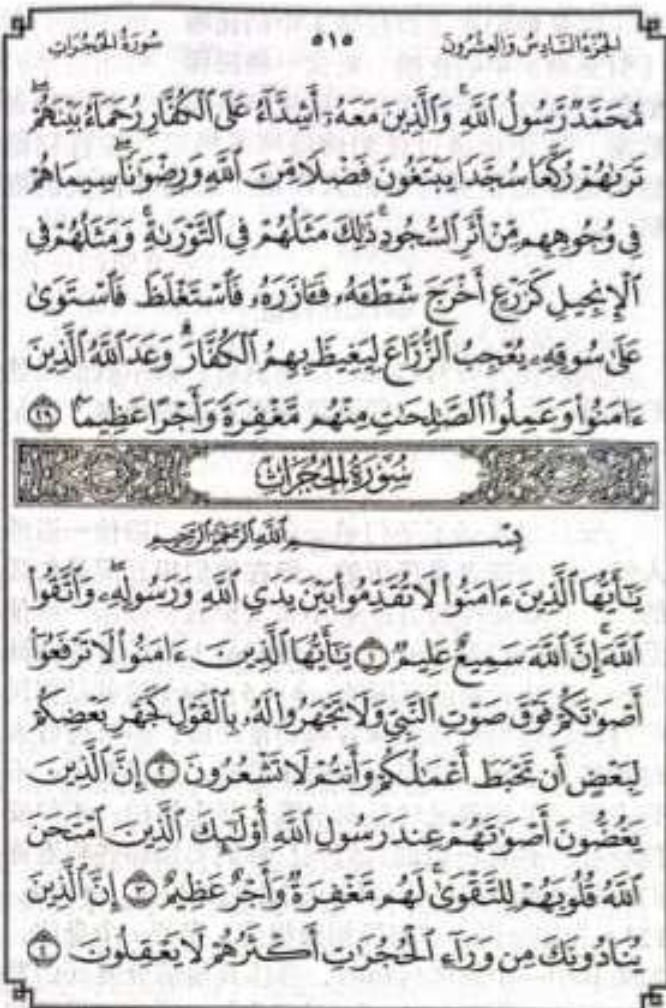 الجزء السادس والعشرون ٥١٥ سورة الحجرات
مُّحَمَّدٌ رَّسُولُ ٱللَّهِ ۚ وَٱلَّذِينَ مَعَهُۥٓ أَشِدَّآءُ عَلَى ٱلْكُفَّارِ رُحَمَآءُ بَيْنَهُمْ ۖ
تَرَىٰهُمْ رُكَّعًا سُجَّدًا يَبْتَغُونَ فَضْلًا مِّنَ ٱللَّهِ وَرِضْوَٰنًا ۖ سِيمَاهُمْ
فِى وُجُوهِهِم مِّنْ أَثَرِ ٱلسُّجُودِ ۚ ذَٰلِكَ مَثَلُهُمْ فِى ٱلتَّوْرَىٰةِ ۚ وَمَثَلُهُمْ فِى
ٱلْإِنجِيلِ كَزَرْعٍ أَخْرَجَ شَطْـَٔهُۥ فَـَٔازَرَهُۥ فَٱسْتَغْلَظَ فَٱسْتَوَىٰ
عَلَىٰ سُوقِهِۦ يُعْجِبُ ٱلزُّرَّاعَ لِيَغِيظَ بِهِمُ ٱلْكُفَّارَ ۗ وَعَدَ ٱللَّهُ ٱلَّذِينَ
ءَامَنُوا۟ وَعَمِلُوا۟ ٱلصَّٰلِحَٰتِ مِنْهُم مَّغْفِرَةً وَأَجْرًا عَظِيمًۢا ٢٩
سُورَةُ الحُجُرَاتِ
بِسْمِ ٱللَّهِ ٱلرَّحْمَٰنِ ٱلرَّحِيمِ
يَٰٓأَيُّهَا ٱلَّذِينَ ءَامَنُوا۟ لَا تُقَدِّمُوا۟ بَيْنَ يَدَىِ ٱللَّهِ وَرَسُولِهِۦ ۖ وَٱتَّقُوا۟
ٱللَّهَ ۚ إِنَّ ٱللَّهَ سَمِيعٌ عَلِيمٌ ١ يَٰٓأَيُّهَا ٱلَّذِينَ ءَامَنُوا۟ لَا تَرْفَعُوٓا۟
أَصْوَٰتَكُمْ فَوْقَ صَوْتِ ٱلنَّبِىِّ وَلَا تَجْهَرُوا۟ لَهُۥ بِٱلْقَوْلِ كَجَهْرِ بَعْضِكُمْ
لِبَعْضٍ أَن تَحْبَطَ أَعْمَٰلُكُمْ وَأَنتُمْ لَا تَشْعُرُونَ ٢ إِنَّ ٱلَّذِينَ
يَغُضُّونَ أَصْوَٰتَهُمْ عِندَ رَسُولِ ٱللَّهِ أُو۟لَٰٓئِكَ ٱلَّذِينَ ٱمْتَحَنَ
ٱللَّهُ قُلُوبَهُمْ لِلتَّقْوَىٰ ۚ لَهُم مَّغْفِرَةٌ وَأَجْرٌ عَظِيمٌ ٣ إِنَّ ٱلَّذِينَ
يُنَادُونَكَ مِن وَرَآءِ ٱلْحُجُرَٰتِ أَكْثَرُهُمْ لَا يَعْقِلُونَ ٤